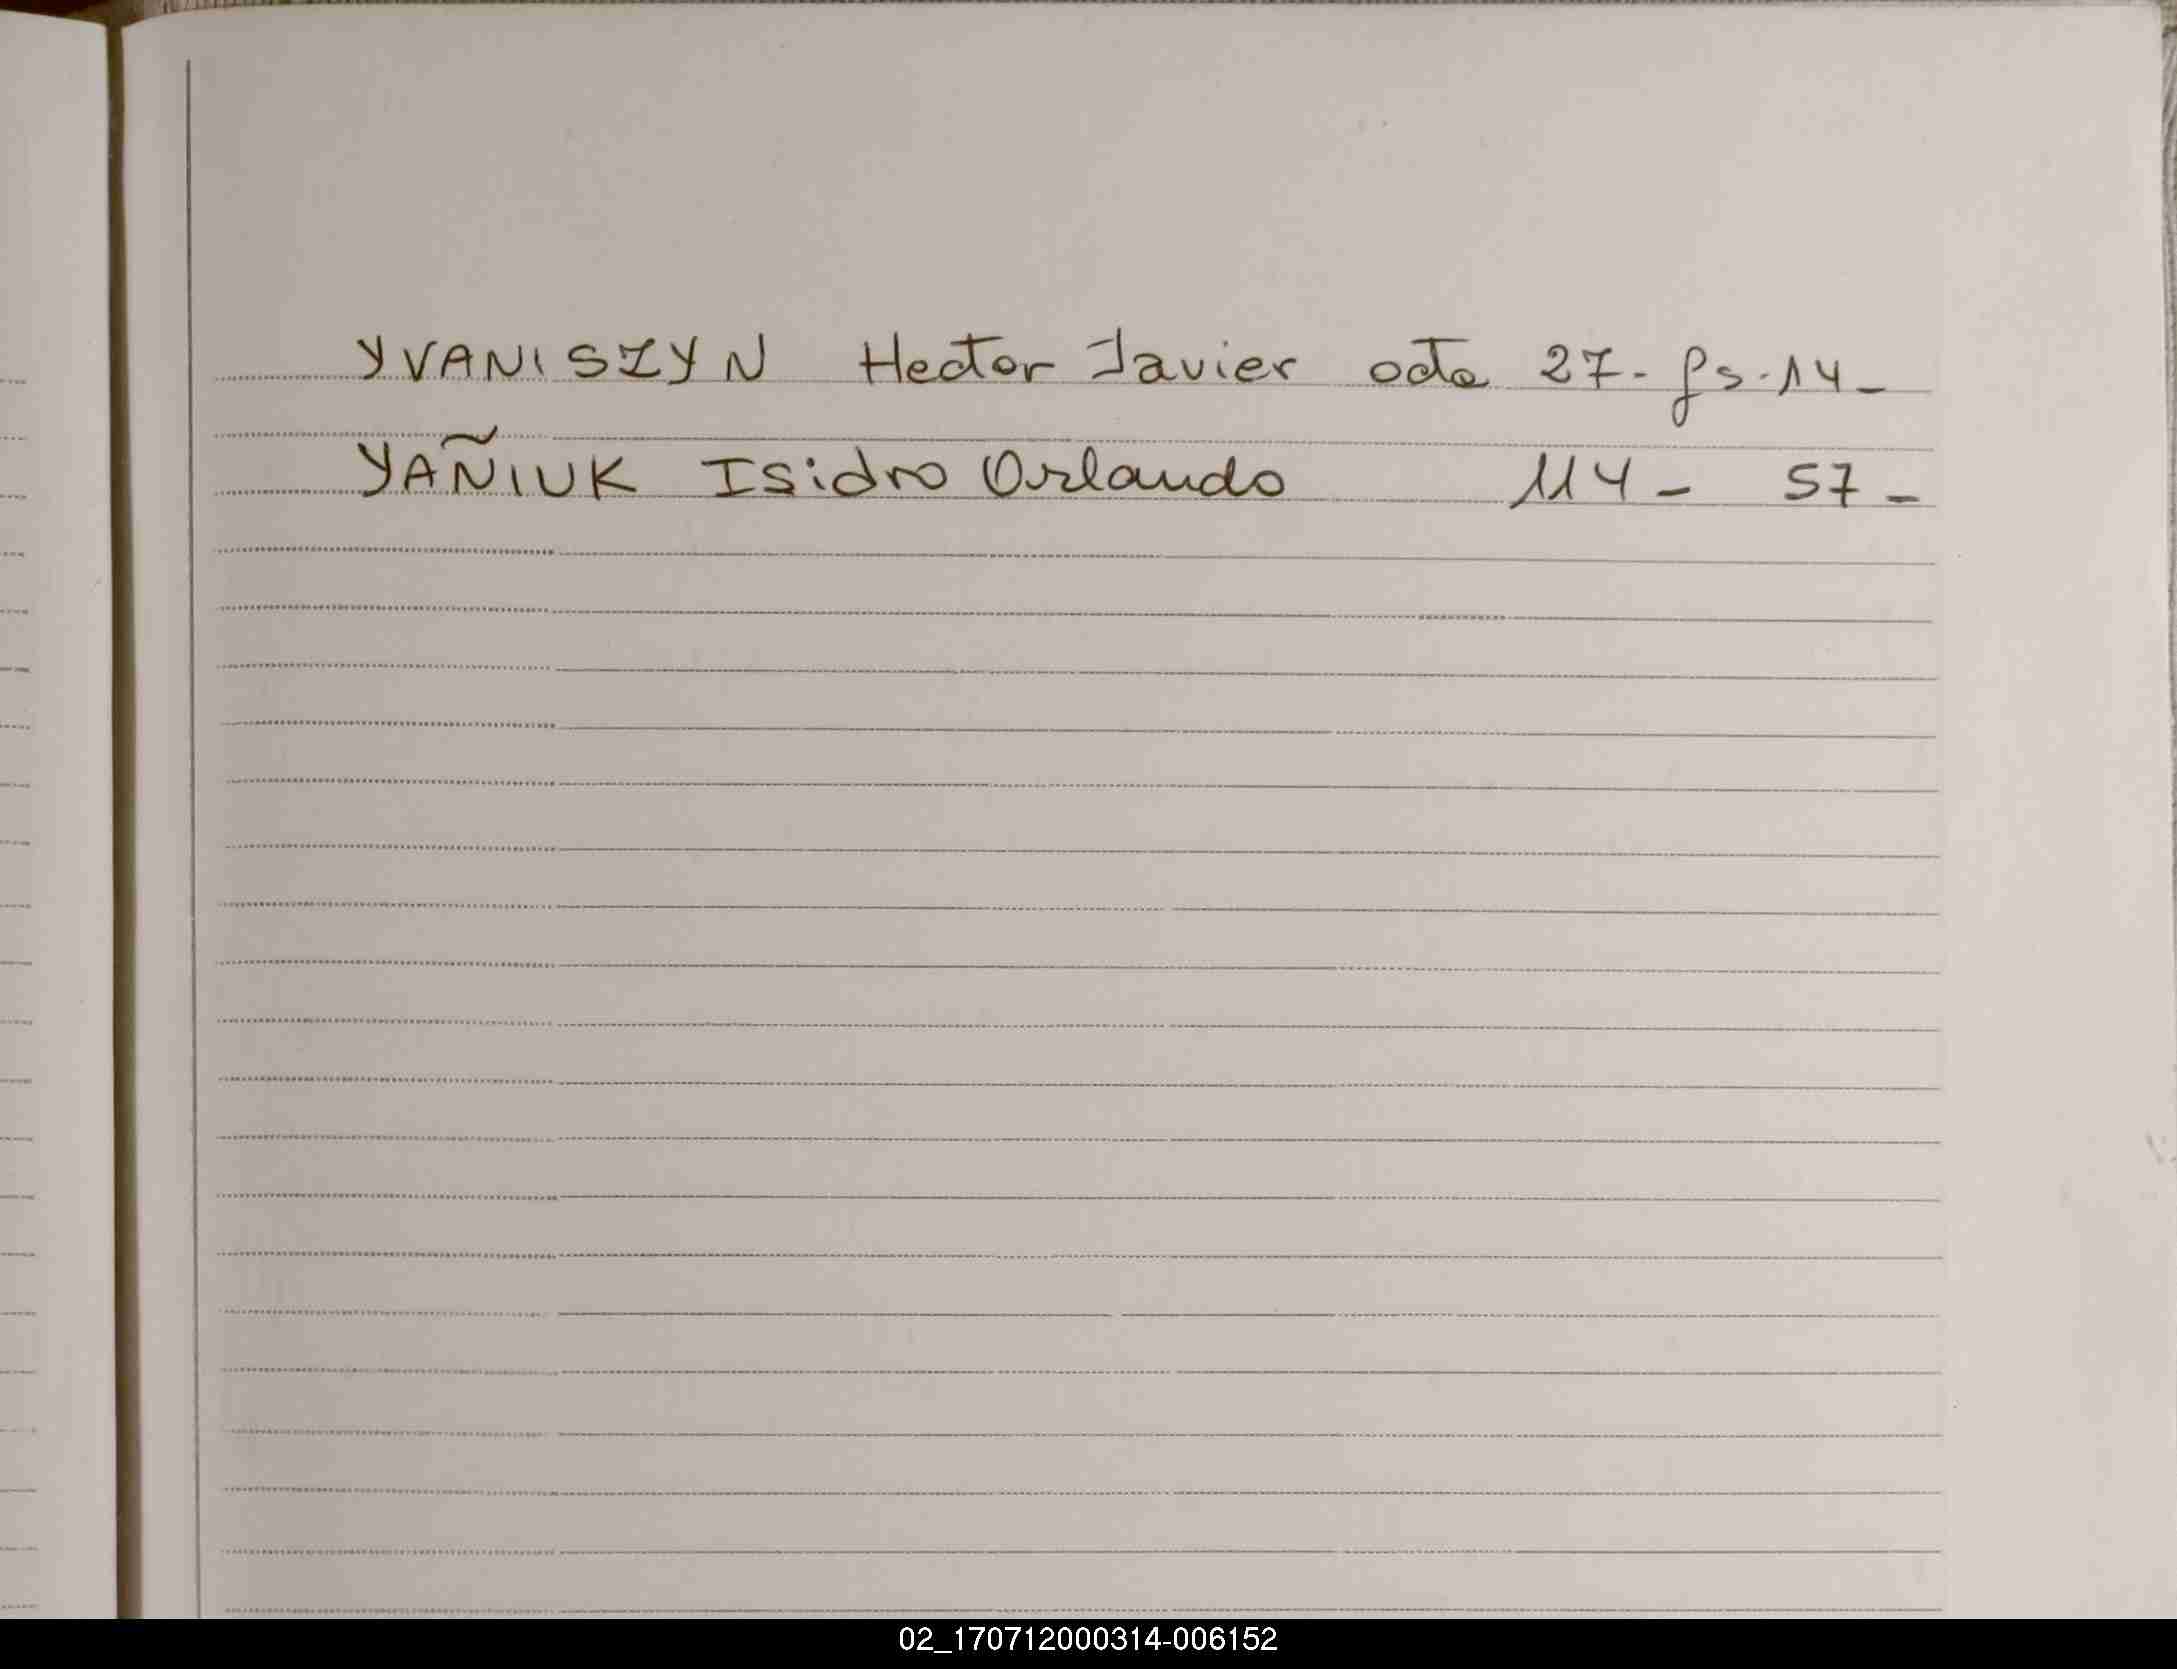 YVANISZYN Hector Javier acta 27- fs.14-
YAÑIUK Isidro Orlando 114- 57-
02_170712000314-006152